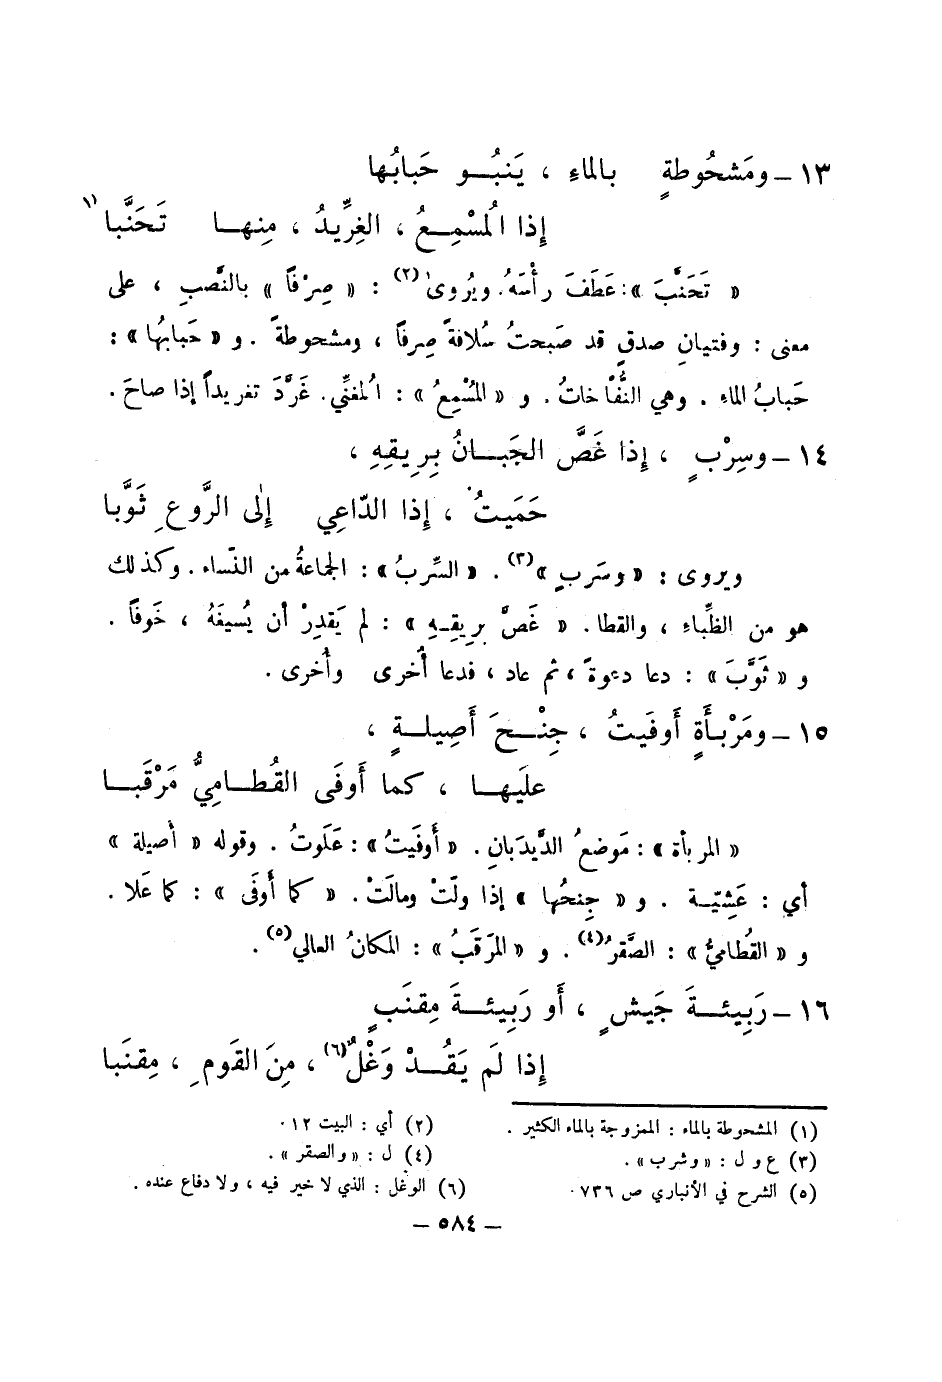 ١٣ – ومَشحُوطةٍ بالماءِ ، يَنبُـو حَبابُها
إذا المُسْمِـعُ ، الغِرِّيدُ ، مِنهـا تَحَنَّبا (١)
« تَحَنَّبَ » : عَطَفَ رأسَهُ. ويُروىٰ (٢) : « صِرْفاً » بالنَّصبِ ، على
معنى : وفتيانِ صدقٍ قد صَبحتُ سُلافةً صِرفاً ، ومشحوطةً . و « حَبابُها » :
حَبابُ الماءِ . وهي النُّفّاخاتُ . و « المُسْمِعُ » : المغنِّي. غَرَّدَ تغريداً إذا صاحَ .
١٤ – وسِرْبٍ ، إذا غَصَّ الجَبـانُ بِرِيقِهِ ،
حَمَيتُ ، إذا الدّاعِي إلى الرَّوعِ ثَوَّبا
ويروى : « وسَربٍ » (٣) . « السِّربُ » : الجماعةُ من النّساء . وكذلك
هو من الظِّباءِ ، والقطا. « غَصَّ بِرِيقِـهِ » : لم يَقدِرْ أن يُسيغَهُ ، خَوفاً .
و « ثَوَّبَ » : دعا دعوةً ، ثم عاد ، فدعا أُخرى وأُخرى .
١٥ – ومَرْبأَةٍ أَوفَيتُ ، جِنْـحَ أَصِيلـةٍ ،
علَيهـا ، كما أَوفَى القُطـامِيُّ مَرْقَبـا
« المربأة » : مَوضعُ الدَّيدَبانِ. « أَوفَيتُ » : عَلَوتُ . وقوله « أصيلة »
أي : عَشِيّـة . و « جِنحُها » إذا ولّتْ ومالَتْ. « كما أَوفَى » : كما عَلا .
و « القُطاميُّ » : الصَّقرُ (٤) . و « المَرقَبُ » : المكانُ العالي (٥) .
١٦ – رَبِيئـةَ جَيشٍ ، أَو رَبِيئـةَ مِقنَبٍ
إذا لَم يَقُـدْ وَغْلٌ (٦) ، مِنَ القَومِ ، مِقنَبا
(١) المشحوطة بالماء : الممزوجة بالماء الكثير . (٢) أي : البيت ١٢ .
(٣) ع و ل : « وشرب » . (٤) ل : « والصقر » .
(٥) الشرح في الأنباري ص ٧٣٦ . (٦) الوغل : الذي لا خير فيه ، ولا دفاع عنده .
– ٥٨٤ –